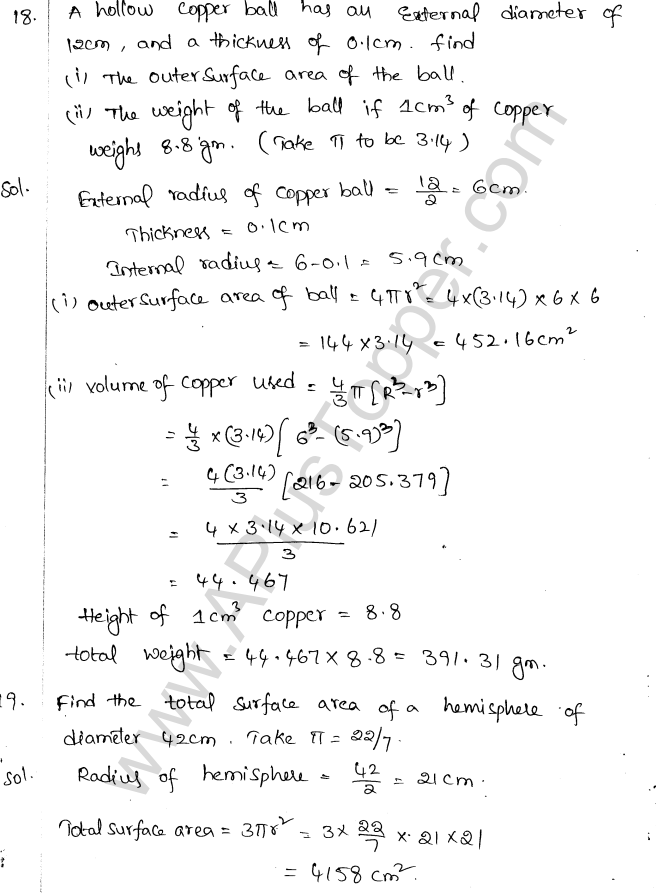 18. A hollow copper ball has an External diameter of
12cm, and a thickness of 0.1cm. find
(i) The outer surface area of the ball.
(ii) The weight of the ball if 1cm³ of copper
weighs 8.8 gm. (Take π to be 3.14)
Sol. External radius of copper ball = 12/2 = 6cm.
Thickness = 0.1cm
Internal radius = 6-0.1 = 5.9cm
(i) outer surface area of ball = 4πr² = 4×(3.14) × 6 × 6
= 144 × 3.14 = 452.16cm²
(ii) volume of copper used = 4/3 π [R³-r³]
= 4/3 × (3.14) [6³ - (5.9)³]
= 4(3.14)/3 [216 - 205.379]
= 4 × 3.14 × 10.621/3
= 44.467
Height of 1cm³ copper = 8.8
total weight = 44.467 × 8.8 = 391.31 gm.
19. Find the total surface area of a hemisphere of
diameter 42cm. Take π = 22/7.
Sol. Radius of hemisphere = 42/2 = 21cm.
Total surface area = 3πr² = 3 × 22/7 × 21 × 21
= 4158 cm².
www.APlusTopper.com